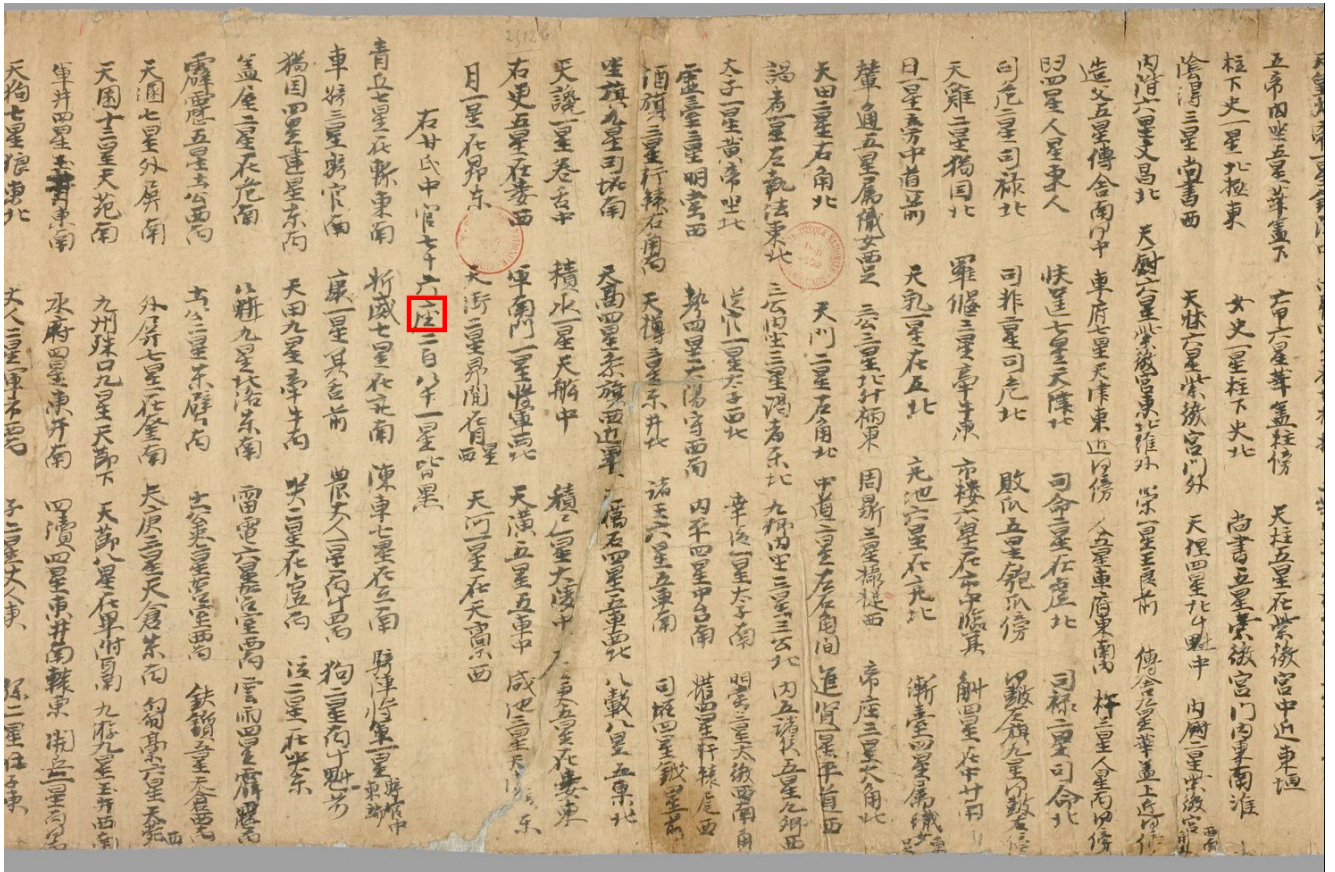 五帝內坐五星華蓋下 六甲六星華蓋杠傍 天柱五星在紫微宮中近東垣
柱下史一星北極東 女史一星柱下史北 尚書五星紫微宮門內東南淮
陰得三星尚書西 天牀六星紫微宮門外 天理四星北斗魁中 內廚二星紫微宮西南
內階六星文昌北 天廚六星紫微宮東北維外 策一星王良前 傳舍九星華蓋上近河傍
造父五星傳舍南河中 車府七星天津東近河傍 人五星車府東南 杵三星人星南傍
臼四星人星東 扶筐七星天陣北 司命二星在虛北 司祿二星司命北
司危二星司祿北 司非二星司危北 敗瓜五星匏瓜傍 河鼓左旗九星河鼓左傍
天雞二星狗国北 羅堰三星牽牛東 市樓六星在市中臨箕 斛四星在中斗南
日一星房中道前 天乳一星在互北 亢池六星在亢北 漸臺四星屬織女東足
輦道五星屬織女西足 三公三星北斗柄東 周鼎三星攝提西 帝座三星大角北
天田二星右角北 天門二星左角北 平道二星左右角間 進賢一星平道西
謁者一星左執法東北 三公內坐三星謁者東北 九卿內坐三星三公北 內五諸侯五星九卿西
太子一星黃帝坐北 從官一星太子西北 幸臣一星太子南 明堂三星太微西南角
靈臺三星明堂西 勢四星太陽守西南 內平四星中台南 爟四星軒轅尾西
酒旗三星軒轅右角南 天樽三星東井北 諸王六星五車南 司怪四星鉞星前
坐旗九星司怪南 天高四星參旗西近畢 礪石四星五車西北 八穀八星五車北
天讒一星卷舌中 積水一星天船中 積屍一星大陵中 左更五星在婁東
右更五星在婁西 軍南門一星將軍西北 天潢五星五車中 咸池三星天潢東
月一星在昴東 天街二星昴間在月星西 天河一星在天廩西
右甘氏中官七十六座二百八十一星皆黑
青丘七星在軫東南 折威七星在亢南 陳車七星在互南 騎陣將軍一星騎官中東端
車騎三星騎官南 糠一星箕舌前 農丈人一星南斗西南 狗二星南斗魁前
狗国四星建星東南 天田九星牽牛南 哭二星在虛南 泣二星在哭東
盖屋二星在危南 八魁九星北落東南 雷電六星營室西南 雲雨四星霹靂南
霹靂五星土公西南 土公二星東壁南 土公吏二星營室西南 鈇鑕五星天倉西南
天溷七星外屏南 外屏七星在奎南 天庾三星天倉東南 芻藁六星天苑西
天園十三星天苑南 九州殊口九星天節下 天節八星在畢附耳南 九斿九星玉井西南
軍井四星玉井東南 水府四星東井南 四瀆四星東井南轅東 闕丘二星南河南
天狗七星狼東北 丈人二星軍市西南 子二星丈人東 孫二星在子東